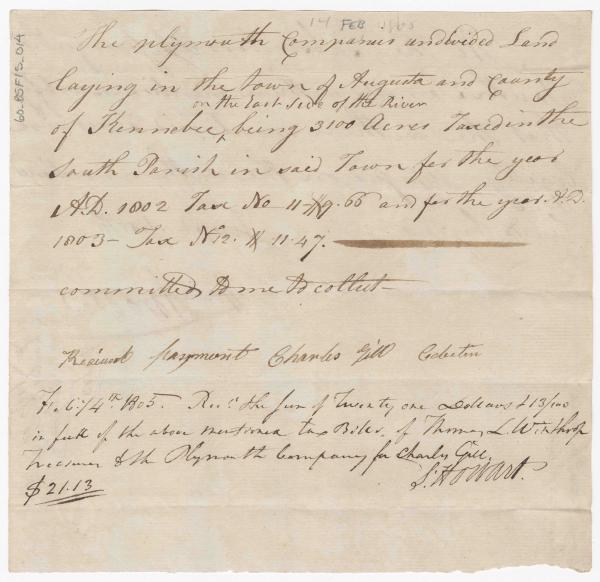 14 FEB 1805
60-05F15-014
The plymouth Companies undivided Land
laying in the town of Augusta and County
on the East side of the River
of Kennebec, being 3100 Acres Taxed in the
South Parish in said Town for the year
A.D. 1802 Tax No 11-$9.66 and for the year A.D.
1803 - Tax No 12. $ 11.47.
committed to me to collect -
Received payment Charles Gill Collector
Feb. 14th 1805. Recd. the sum of Twenty one Dollars & 13/100
in full of the above mentioned tax Bills, of Thomas L Winthrop
Treasurer to the Plymouth Company for Charles Gill.
$21.13
S. Howard.